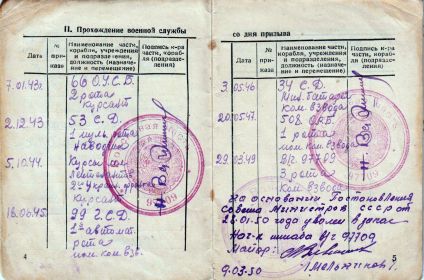 II. Прохождение военной службы
Дата
№ при-
каза
Наименование части,
корабля, учреждения
и подразделения,
должность (назначе-
ние и перемещение)
Подпись к-ра
части, кораб-
ля (подразде-
ления)
7.01.43г.
66 О.У.С.Б.
2 рота
курсант
2.12.43
53 С.Д.
1 пульрота
наводчик
5.10.44.
Курсы
лейтенантов
курсант
18.06.45.
99 г.С.Д.
1ª автомат.
рота
пом. ком. взв.
4
со дня призыва
Дата
№ при-
каза
Наименование части,
корабля, учреждения
и подразделения,
должность (назначе-
ние и перемещение)
Подпись к-ра
части, кораб-
ля (подразде-
ления)
3.05.46
34 С.Д.
ком. взвода
20.05.47.
508
1 рота
пом. ком. взвода
29.03.49
В/ч 97709
3 рота
ком. взвода
На основании Постановления
Совета Министров СССР от
28.01.50 года уволен в запас
Нач-к штаба в/ч 97709
Майор:
9.03.50
5